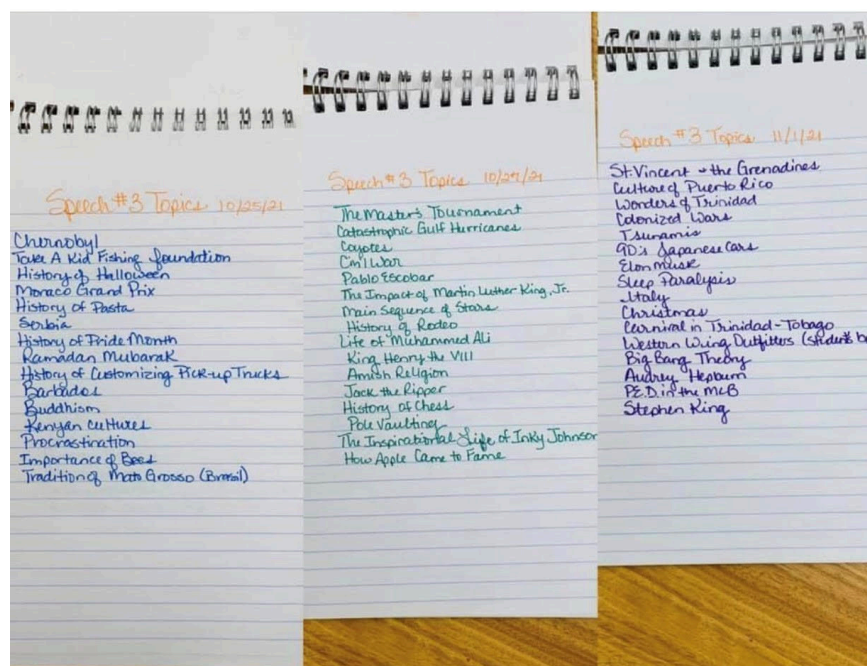 Speech #3 Topics 10/25/21
Chernobyl
Take A Kid Fishing Foundation
History of Halloween
Monaco Grand Prix
History of Pasta
Serbia
History of Pride Month
Ramadan Mubarak
History of Customizing Pick-up Trucks
Barbados
Buddhism
Kenyan Cultures
Procrastination
Importance of Bees
Tradition of Mato Grosso (Brasil)
Speech #3 Topics 10/27/21
The Master's Tournament
Catastrophic Gulf Hurricanes
Coyotes
Civil War
Pablo Escobar
The Impact of Martin Luther King, Jr.
Main Sequence of Stars
History of Rodeo
Life of Muhammed Ali
King Henry the VIII
Amish Religion
Jack the Ripper
History of Chess
Pole Vaulting
The Inspirational Life of Inky Johnson
How Apple Came to Fame
Speech #3 Topics 11/1/21
St. Vincent + the Grenadines
Culture of Puerto Rico
Wonders of Trinidad
Colonized Wars
Tsunamis
90's Japanese Cars
Elon Musk
Sleep Paralysis
Italy
Christmas
Carnival in Trinidad-Tobago
Western Wing Outfitters (student's
Big Bang Theory
Audrey Hepburn
P.E.D. in the MLB
Stephen King